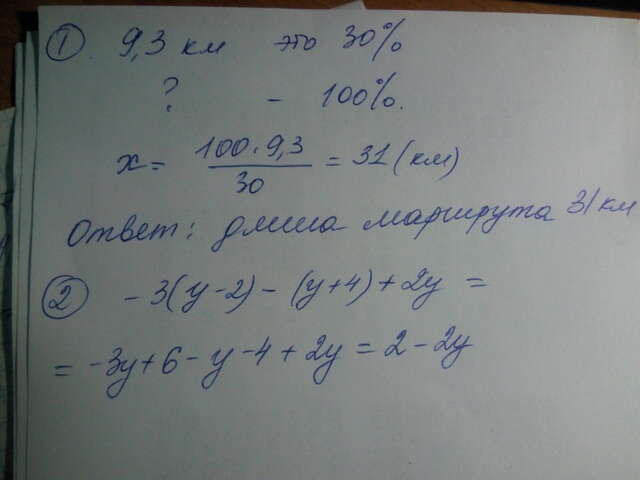 1. 9,3 км это 30%
? - 100%.
x = 100·9,3/30 = 31 (км)
Ответ: длина маршрута 31 км
2 -3(y-2)-(y+4)+2y =
= -3y+6-y-4+2y = 2-2y